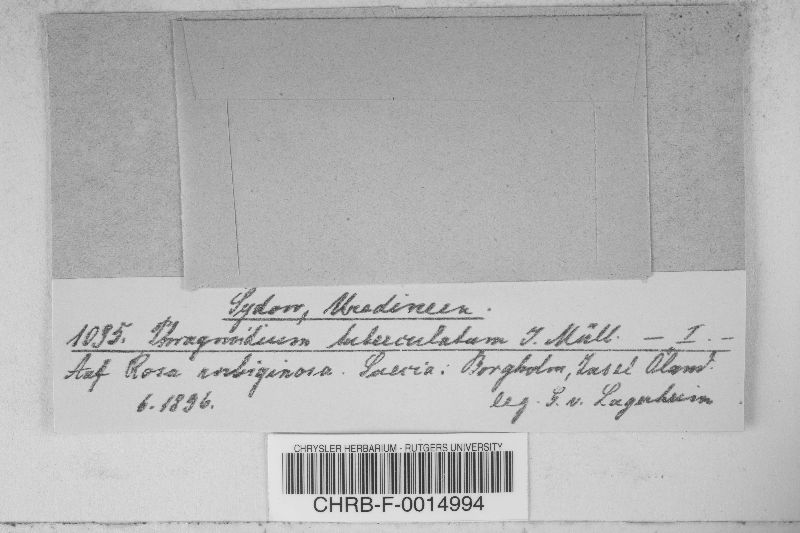 Sydow, Uredineen.
1095. Phragmidium tuberculatum J. Müll. — I. —
Auf Rosa rubiginosa. Suecia: Borgholm, Insel Öland.
6.1896. leg. G. v. Lagerheim
CHRYSLER HERBARIUM - RUTGERS UNIVERSITY
CHRB-F-0014994